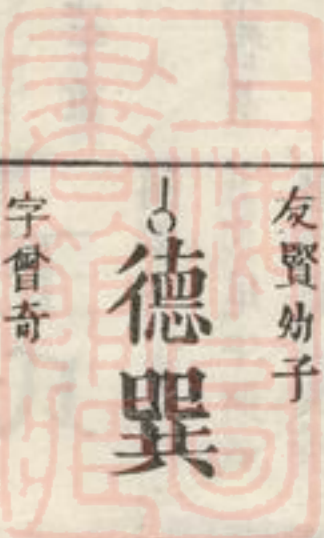 友賢幼子
德巽
字會奇